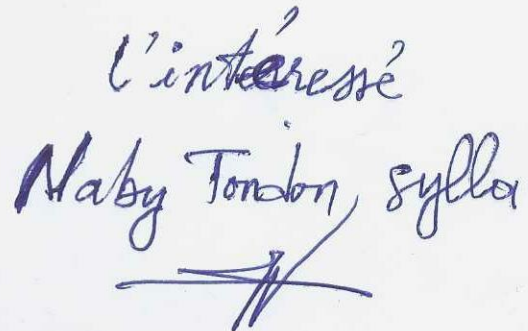 l'intéressé
Naby Tondon, sylla